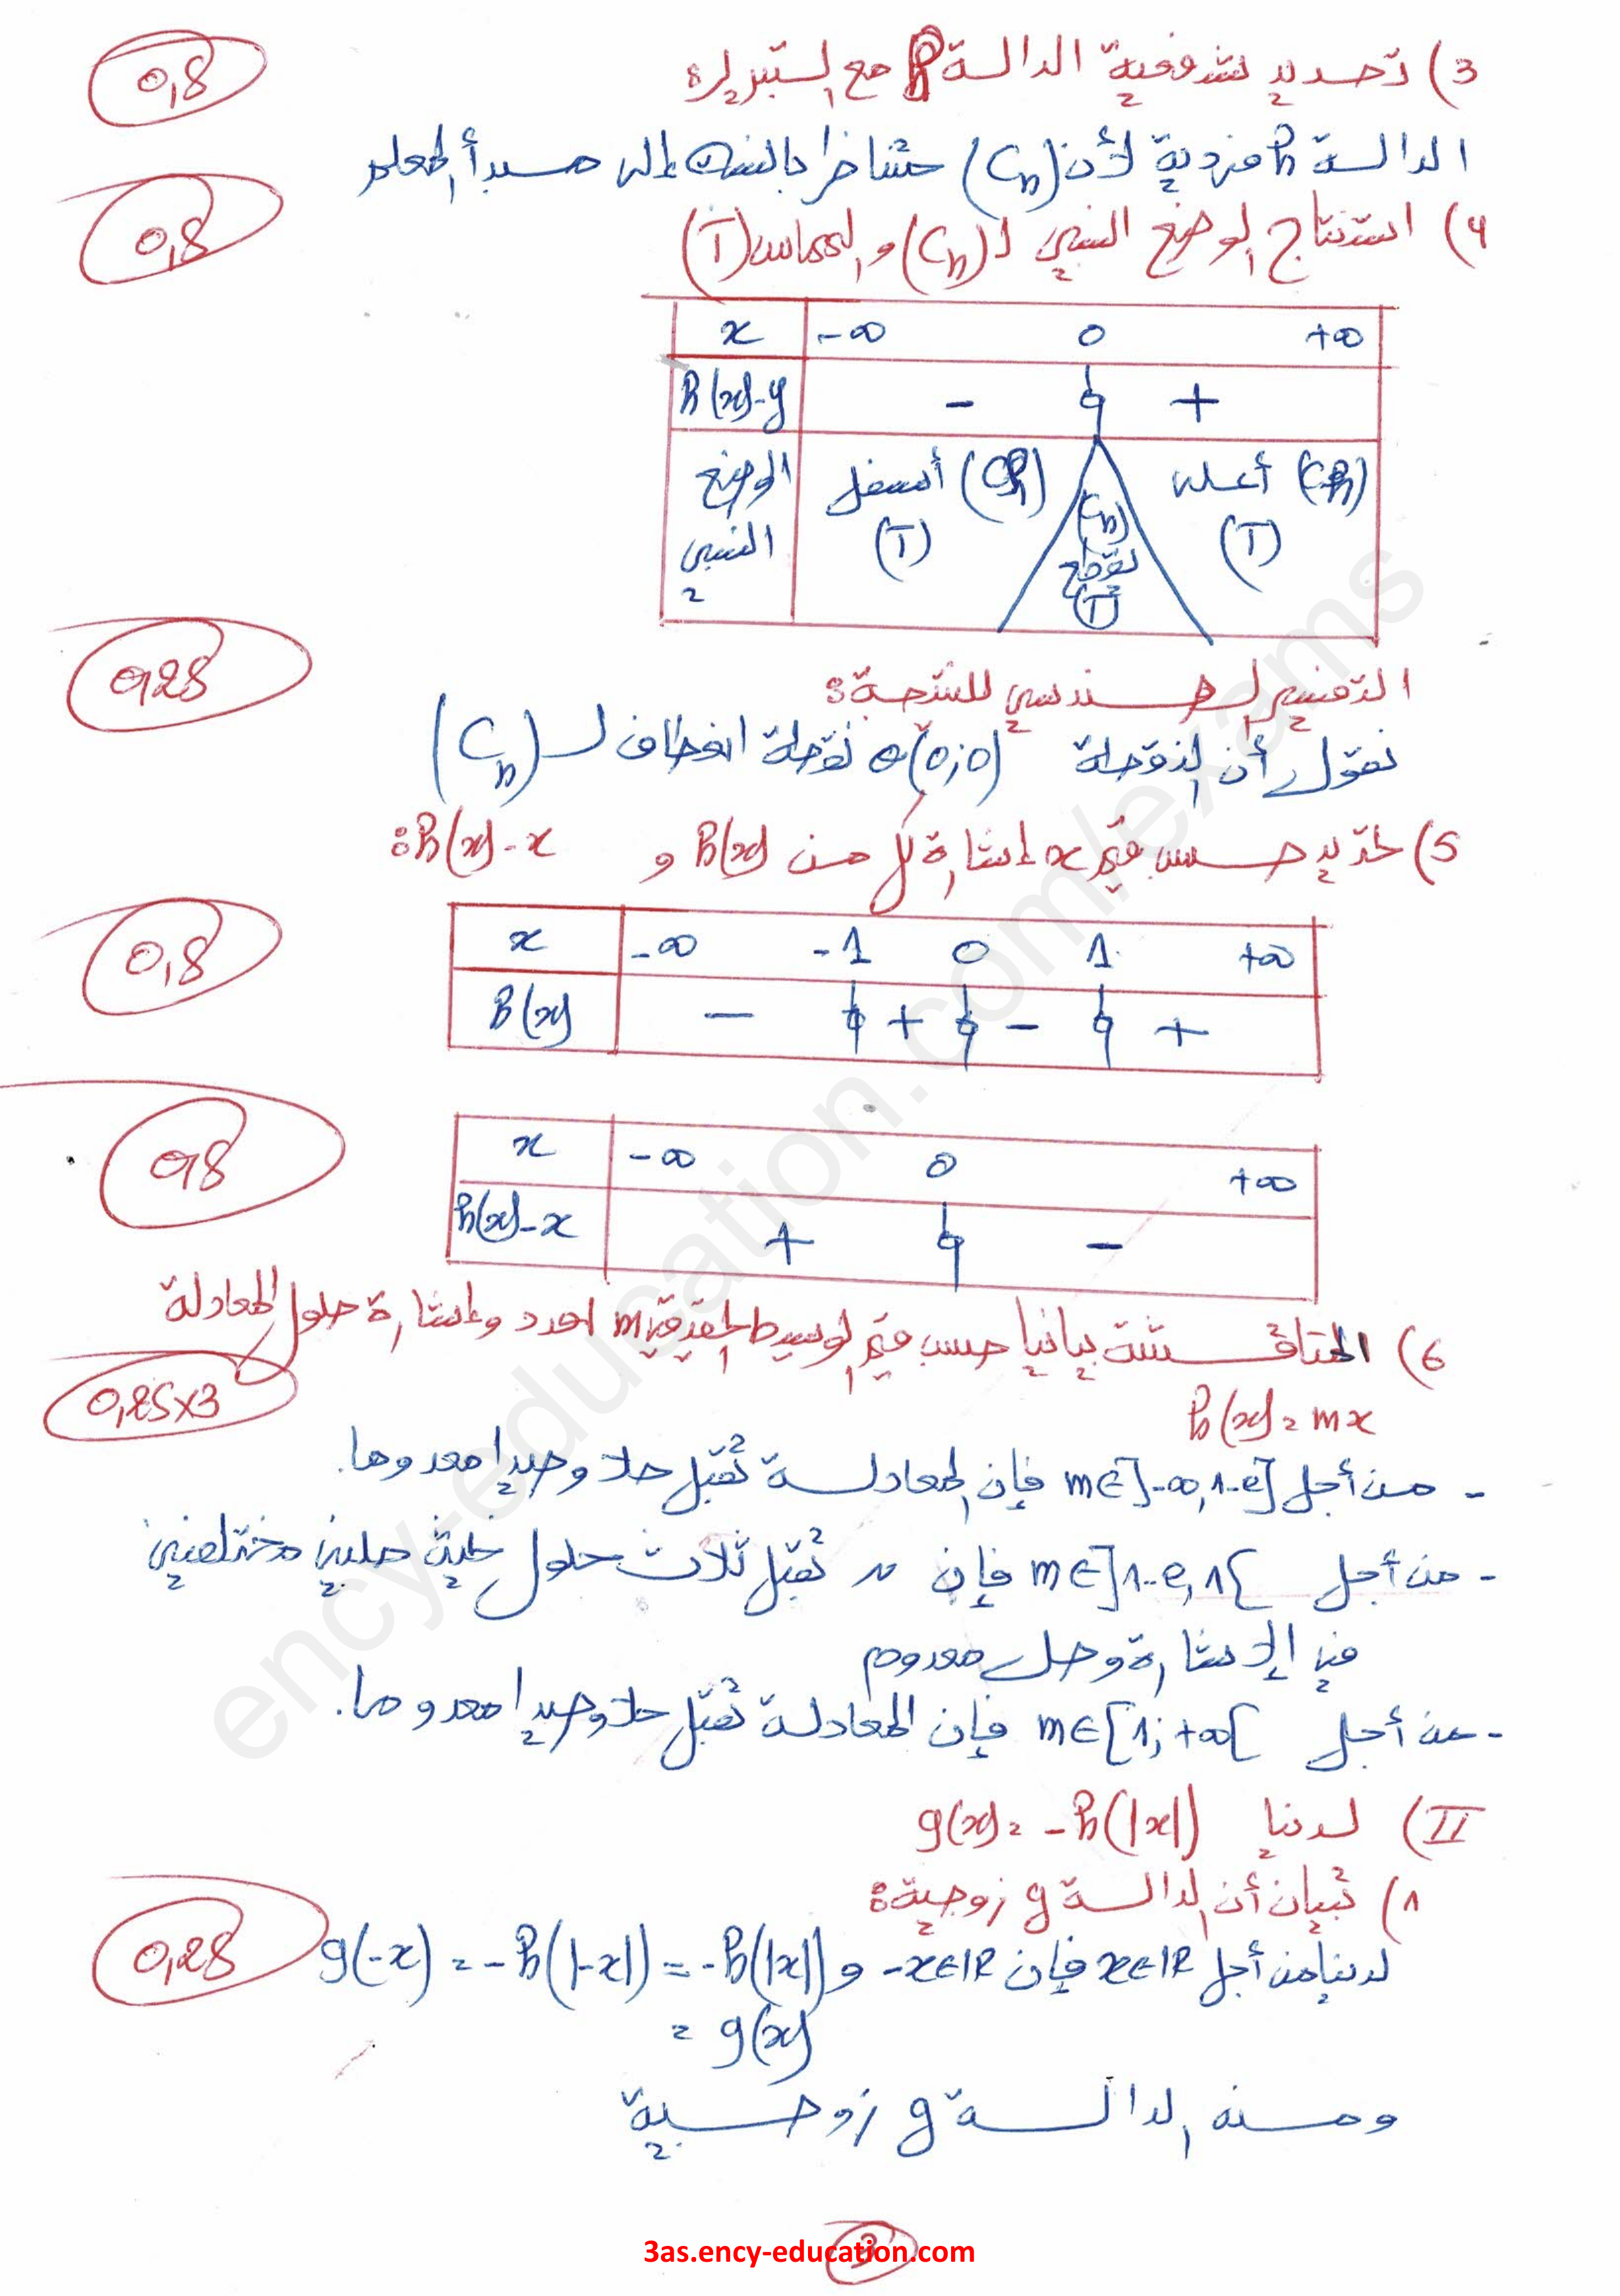 0,5
3) تحديد شفعية الدالة h مع التبرير:
الدالة h فردية لأن (Ch) متناظر بالنسبة إلى مبدأ المعلم
0,5
4) استنتاج الوضع النسبي لـ (Ch) و المماس (T)
x -∞ 0 +∞
h(x)-y - 0 +
الوضع النسبي (Ch) أسفل (T) (Ch) يقطع (T) (Ch) أعلى (T)
0,25
التفسير الهندسي للنتيجة:
نقول أن النقطة O(0;0) نقطة انعطاف لـ (Ch)
5) تحديد حسب قيم x إشارة كل من h(x) و h(x)-x:
0,5
x -∞ -1 0 1 +∞
h(x) - 0 + 0 - 0 +
0,5
x -∞ 0 +∞
h(x)-x + 0 -
6) المناقشة بيانيا حسب قيم الوسيط الحقيقي m عدد وإشارة حلول المعادلة
0,25x3
h(x)=mx
- من أجل m∈]-∞,1-e] فإن المعادلة تقبل حلا وحيدا معدوما.
- من أجل m∈]1-e,1[ فإن // تقبل ثلاث حلول حلين مختلفين
في الإشارة وحل معدوم
- من أجل m∈[1;+∞[ فإن المعادلة تقبل حلا وحيدا معدوما.
II) لدينا g(x)=-h(|x|)
1) تبيان أن الدالة g زوجية:
0,25
لدينا من أجل x∈IR فإن -x∈IR و g(-x)=-h(|-x|)=-h(|x|)
=g(x)
ومنه الدالة g زوجية
3
3as.ency-education.com
ency-education.com/exams